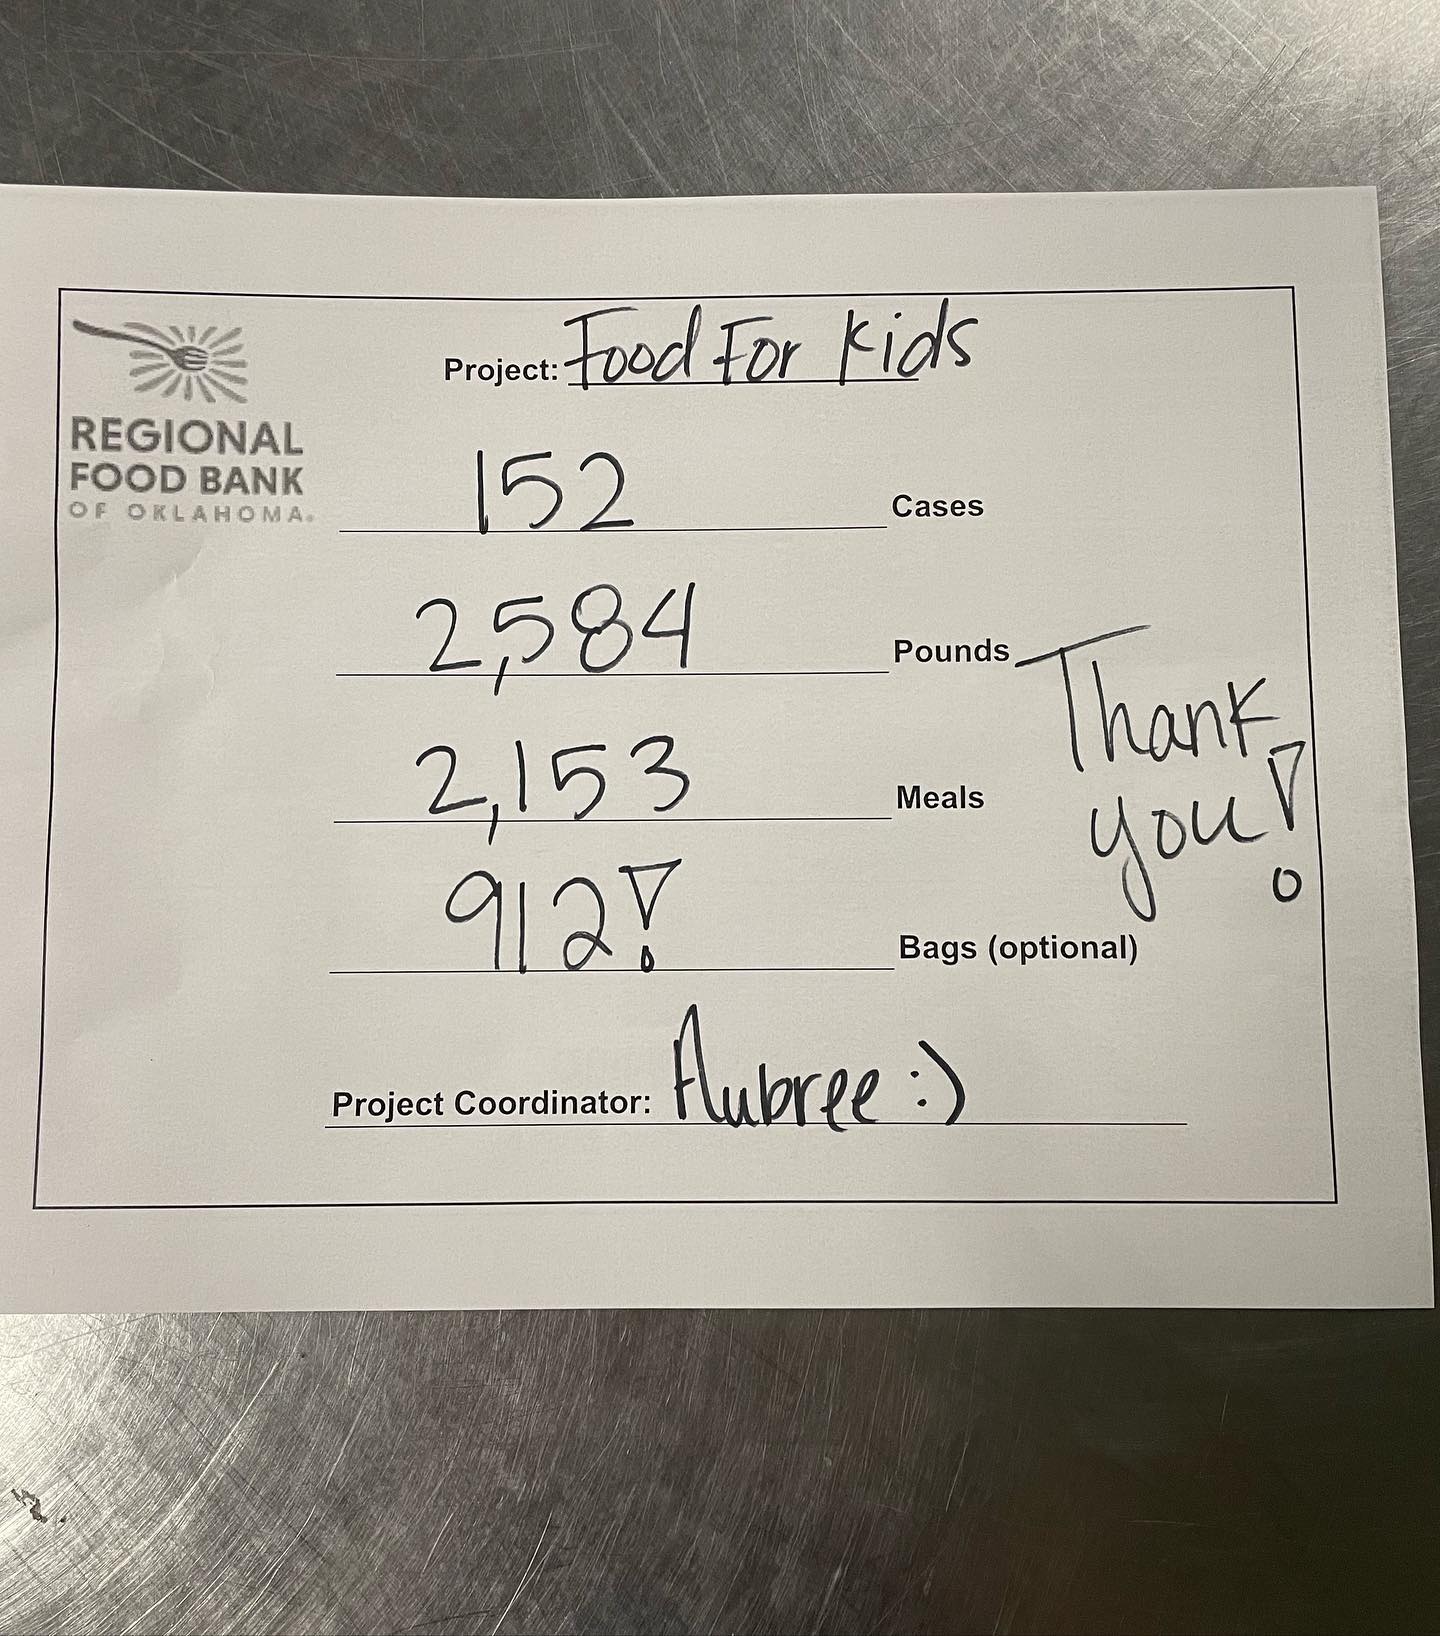 REGIONAL
FOOD BANK
OF OKLAHOMA.
Project: Food For Kids
152 Cases
2,584 Pounds
2,153 Meals
Thank
you!
912! Bags (optional)
Project Coordinator: Aubree :)